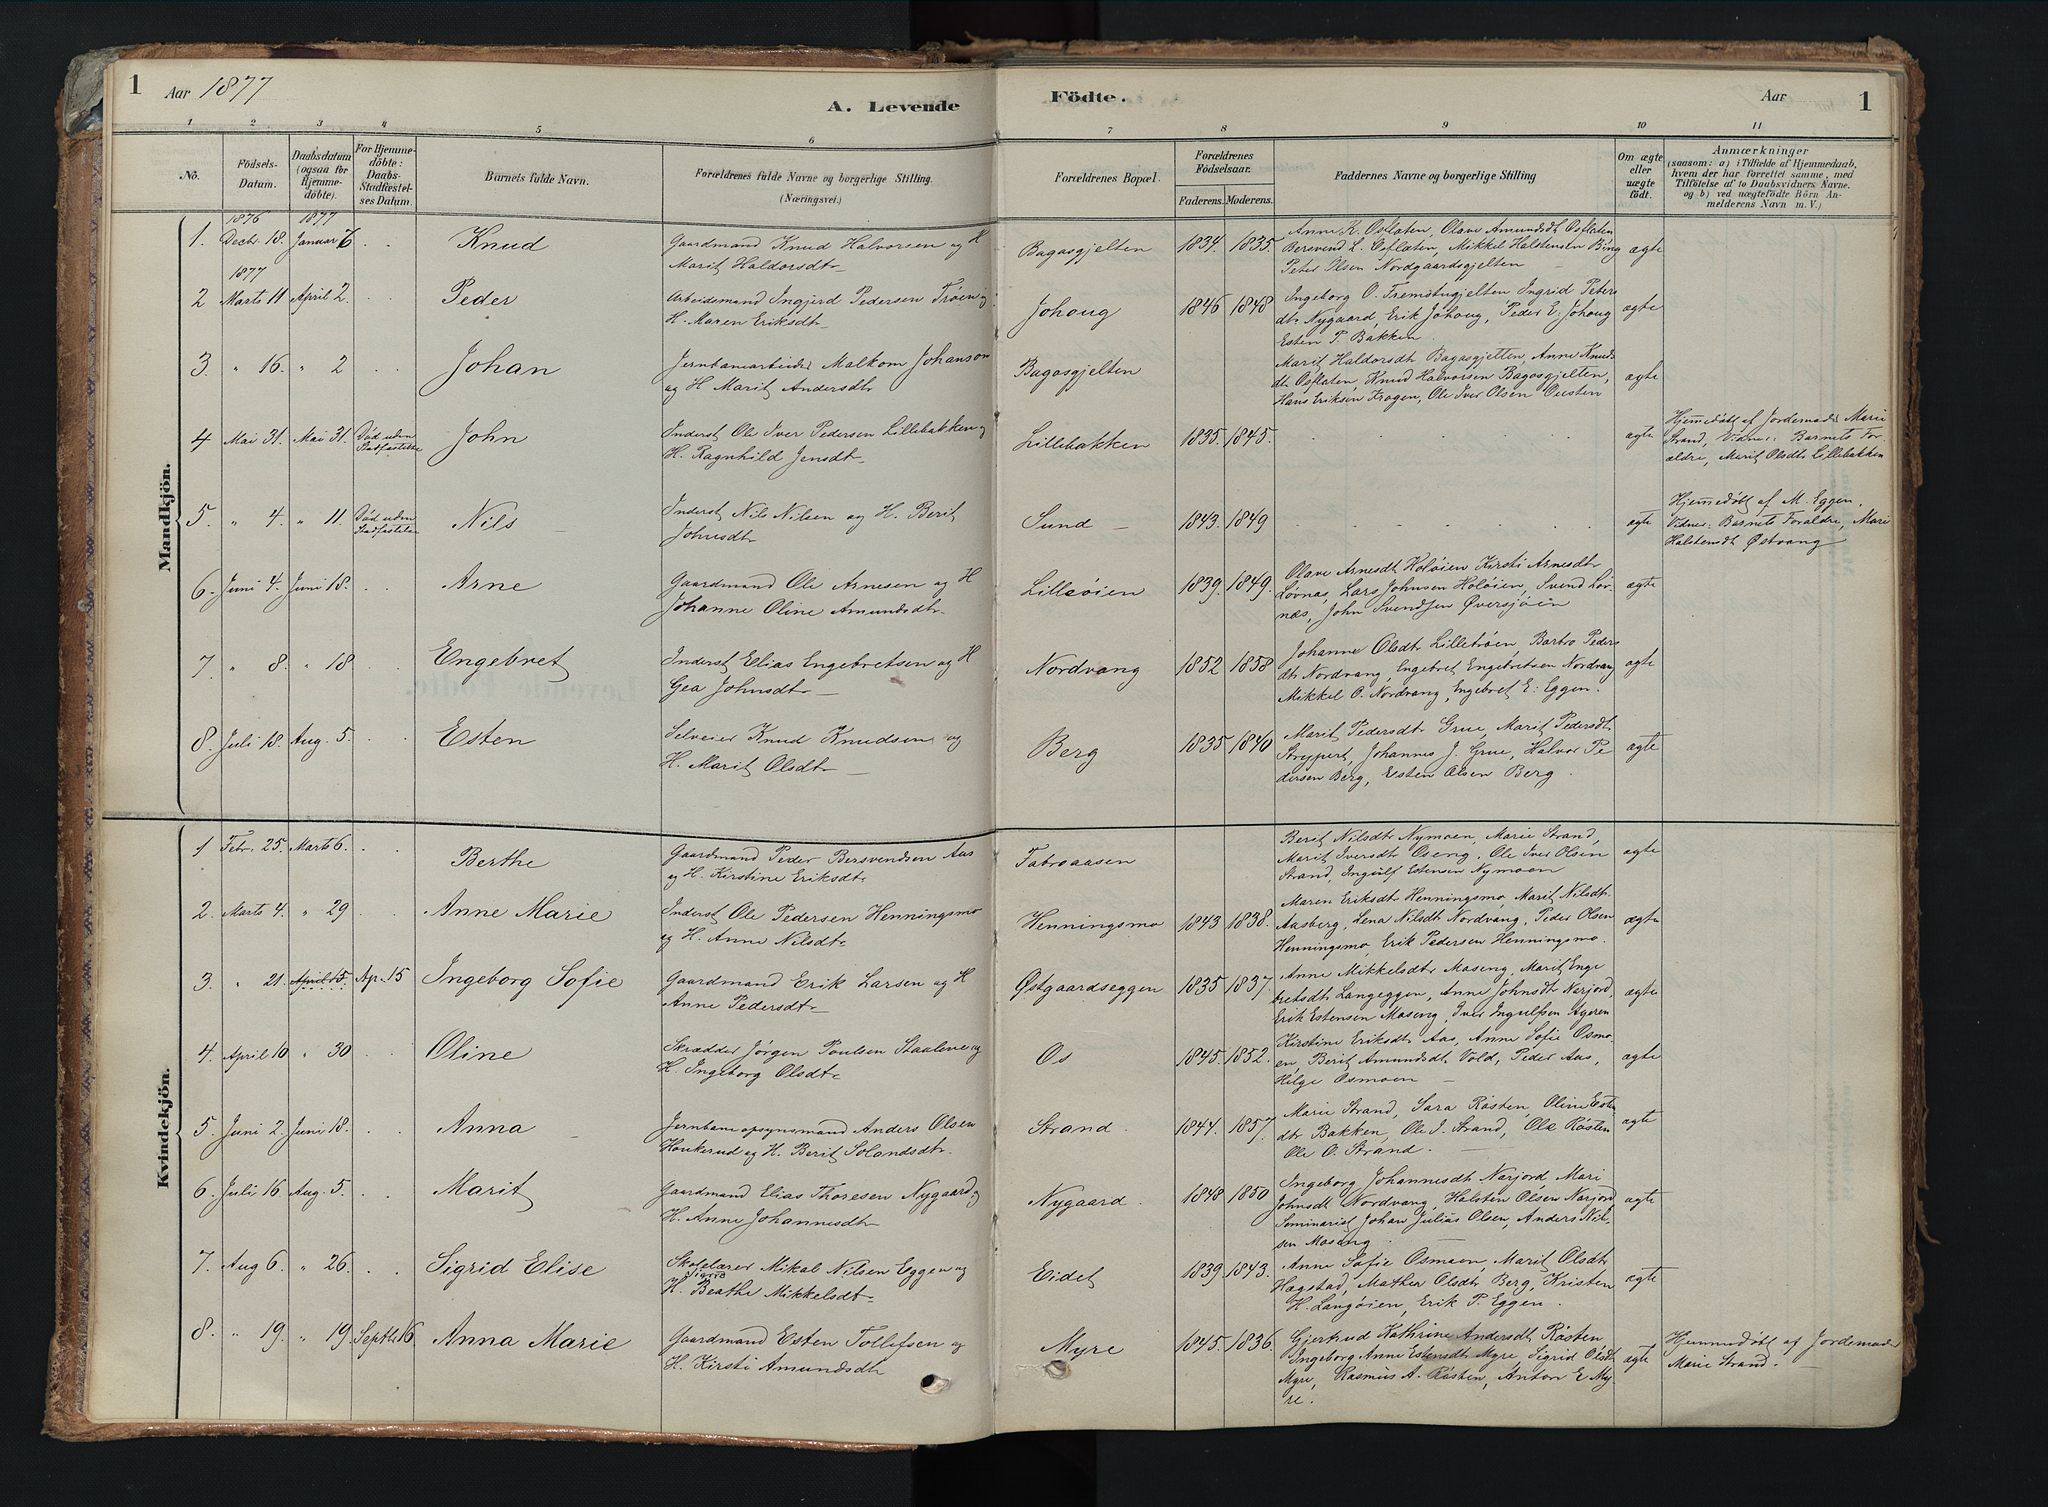 1 Aar 1877 A. Levende Födte. Aar 1
1 2 3 4 5 6 7 8 9 10 11
No. Födsels-Datum. Daabsdatum (ogsaa for Hjemme-döbte). For Hjemme-döbte: Daabs-Stadfæstel-ses Datum. Barnets fulde Navn. Forældrenes fulde Navne og borgerlige Stilling. (Næringsvei.) Forældrenes Bopæl. Forældrenes Födselsaar. Faderens. Moderens. Faddernes Navne og borgerlige Stilling Om ægte eller uægte födt. Anmærkninger (saasom: a) i Tilfælde af Hjemmedaab, hvem der har forrettet samme, med Tilföielse af to Daabsvidners Navne. og b) ved uægtefödte Börn An-melderens Navn m. V.)
Mandkjön.
1876 1877
1. Decbr. 18. Januar 6 Knud Gaardmand Knud Halvorsen og H Marit Haldorsdtr Bagasgjelten 1834. 1835. Anne K. Osflaten, Olave Amundsdt Osflaten Bersvend L. Osflaten, Mikkel Halstensen Bing Peter Olsen Nordgaardsgjelten ægte
1877
2 Marts 11 April 2. Peder Arbeidsmand Ingjerd Pedersen Trøen og H. Maren Eriksdtr Johoug 1846 1848 Ingeborg O. Fremstugjelten Ingrid Peters dtr Nygaard, Erik Johoug, Peder E. Johoug Esten P. Bakken ægte
3. " 16. " 2 Johan Jernbanearbeider Malkom Johanson og H. Marit Andersdtr Bagosgjelten Marit Haldorsdt Bagosgjelten, Anne Knuds dtr Osflaten, Knud Halvorsen Bagosgjelten, Hans Eriksen Krogen, Ole Iver Olsen Ousten ægte
4 Mai 31. Mai 31. Død uden Stadfæstelse John Inderst Ole Iver Pedersen Lillebakken og H. Ragnhild Jensdtr Lillebakken 1835. 1845. ægte Hjemmedøbt af Jordemoder Marie Strand, Vidner: Barnets For-ældre, Marit Olsdtr Lillebakken
5. " 4. " 11. Død uden Stadfæstelse Nils Inderst Nils Nilsen og H. Berit Johnsdtr Sund 1843. 1849 ægte Hjemmedøbt af M. Eggen. Vidner: Barnets Forældre, Mari Halstensdt Østvang
6. Juni 4. Juni 18. Arne Gaardmand Ole Arnesen og H Johanne Oline Amundsdtr. Lilleøien 1839. 1849. Olave Arnesdt Holøien Kirsti Arnesdtr Løvnas, Lars Johnsen Holøien, Svend Løv-næs, John Svendsen Øversjøen ægte
7 " 8. " 18 Engebret Inderst Elias Engebretsen og H Gea Johnsdtr Nordvang 1852 1858 Johanne Olsdtr Lilletrøen, Barbro Peders dtr Nordvang, Engebret Engebretsen Nordvang Mikkel O. Nordvang, Engebret E. Eggen. ægte
8. Juli 18. Aug. 5. Esten Selveier Knud Knudsen og H. Marit Olsdtr Berg 1835 1840 Marit Pedersdtr Grue, Marit Pedersdt. Strypert, Johannes J. Grue, Halvor Pe dersen Berg, Esten Olsen Berg. ægte
Kvindekjön.
1 Febr. 25. Marts 6. Berthe Gaardmand Peder Bersvendsen Aas og H. Kirstine Eriksdtr. Tabroaasen Berit Nilsdtr Nymoen, Marie Strand, Marit Iversdtr Oseng, Ole Iver Olsen Strand, Ingulf Estensen Nymoen ægte
2. Marts 4. " 29 Anne Marie Inderst Ole Pedersen Henningsmo og H. Anne Nilsdtr Henningsmo 1843 1838. Maren Eriksdtr Henningsmo, Marit Nilsdtr. Aasberg, Lena Nilsdt Nordvang, Peder Olsen Henningsmo, Erik Pedersen Henningsmo. ægte
3. " 21. April 15. Ap. 15 Ingeborg Sofie Gaardmand Erik Larsen og H Anne Pedersdtr Østgaardseggen 1835 1837. Anne Mikkelsdtr Moseng, Marit Enge bretsdtr Langeggen, Anne Johnsdt Narjord, Erik Estensen Moseng, Iver Ingulfsen Ageren ægte
4. April 10 " 30 Oline Skrædder Jørgen Poulsen Staalene og H. Ingeborg Olsdtr Os 1845. 1852. Kirstine Eriksdtr Aas, Anne Sofie Osmo-en, Berit Amundsdtr Vold, Peder Aas, Helge Osmoen ægte
5. Juni 2. Juni 18. Anna Jernbaneopsynsmand Anders Olsen Houkerud og H. Berit Solandsdtr. Strand. 1844. 1857. Marie Strand, Sara Røsten, Oline Esten dtr Bakken, Ole J. Strand, Ole Røsten Ole O. Strand. ægte
6. Juli 16. Aug. 5. Marit Gaardmand Elias Thoresen Nygaard og H. Anne Johannesdtr Nygaard. 1848 1850 Ingeborg Johannesdt Narjord, Mari Johnsdt Nordvang, Halsten Olsen Narjord, Seminarist Johan Julius Olsen, Anders Niel-sen Moseng. ægte
7. Aug 6. " 26. Sigrid Elise Skolelærer Mikal Nilsen Eggen og H. Sigrid Beathe Mikkelsdtr Eidet 1839 1843. Anne Sofie Osmoen, Marit Olsdtr Hagstad, Mathea Olsdtr Berg, Kristen H. Langøien, Erik P. Eggen. ægte
8. " 19. " 19. Septbr 16 Anna Marie Gaardmand Esten Tollefsen og H. Kirsti Amundsdtr Myre 1845. 1836. Gjertrud Kathrine Andersdt Røsten Ingeborg Anne Estensdtr Myre, Sigrid Olsdt Myre, Rasmus A. Røsten, Anton E My-re. ægte Hjemmedøbt af Jordemoder Marie Strand.